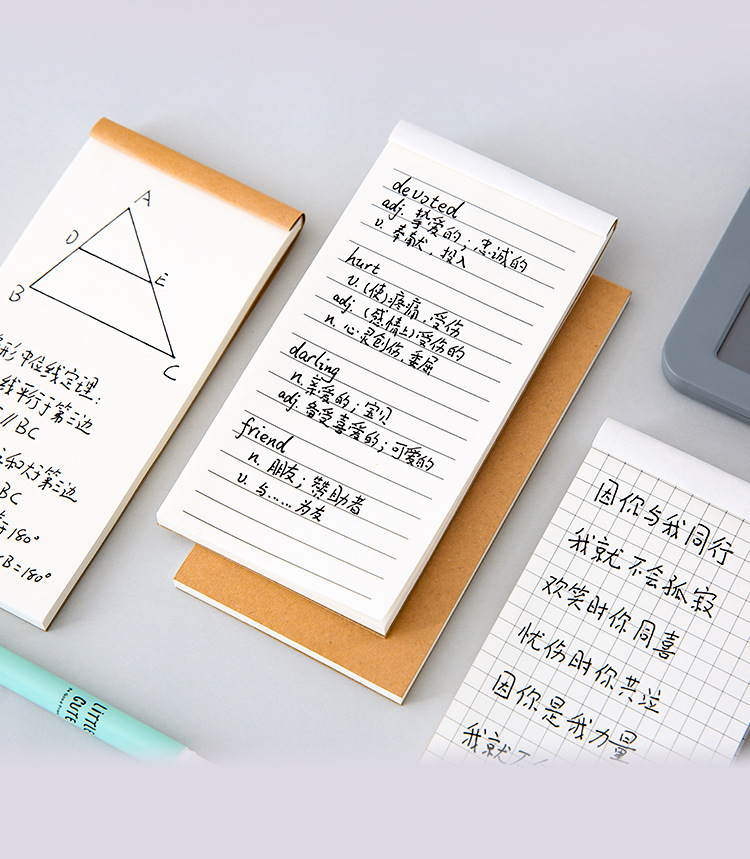 A
D
E
B
C
形中位线定理:
线平行于第三边
// BC
和大于第三边
BC
180°
B=180°
devoted
adj. 挚爱的；忠诚的
v. 奉献，投入
hurt
v. (使)疼痛，受伤
adj. (感情上)受伤的
n. 心灵创伤，委屈
darling
n. 亲爱的；宝贝
adj. 备受喜爱的；可爱的
friend
n. 朋友；赞助者
v. 与……为友
因你与我同行
我就不会孤寂
欢笑时你同喜
忧伤时你共泣
因你是我力量
我就不
LiTTLE
CUTE